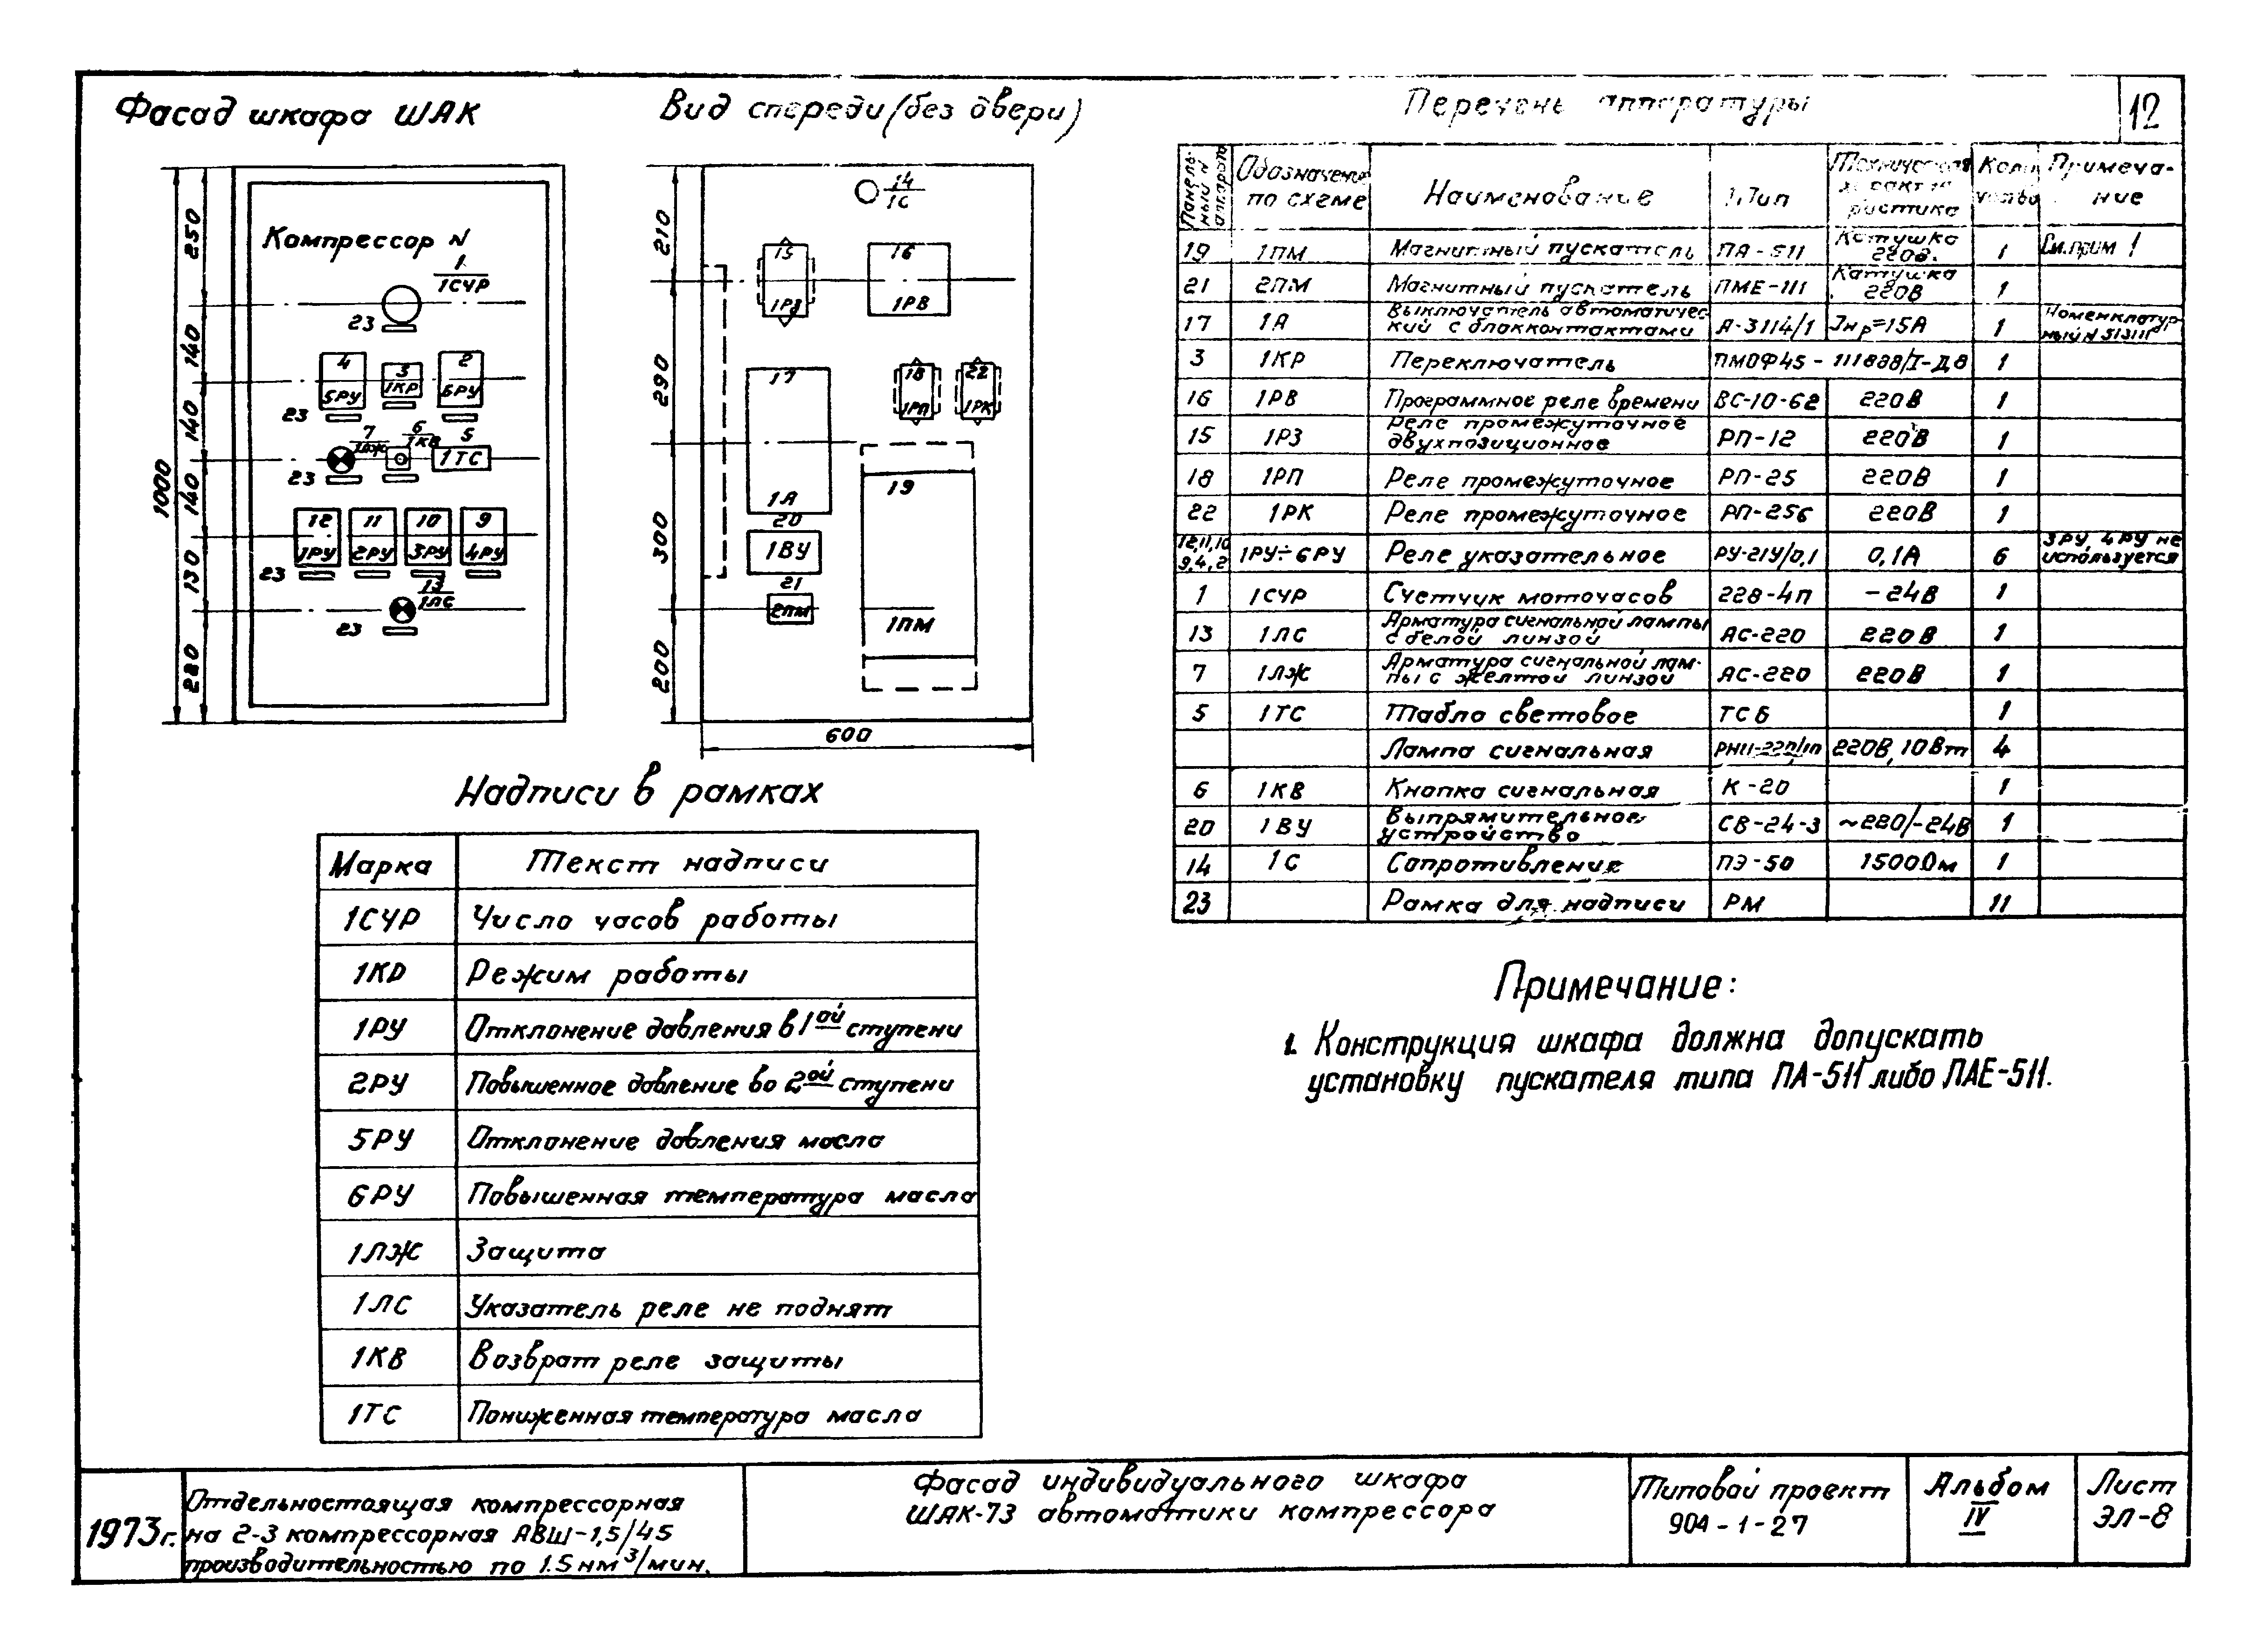 12
Фасад шкафа ШАК
1000
250
140
140
140
130
220
Компрессор N
1
1СЧР
23
4
5РУ
3
1КР
2
6РУ
23
7
1ЛЖ
6
1КВ
5
1ТС
23
12
1РУ
11
2РУ
10
3РУ
9
4РУ
23
13
1ЛС
23
Вид спереди (без двери)
210
290
300
200
600
14
1С
15
1РЗ
16
1РВ
17
1А
18
1РП
22
1РК
19
1ПМ
20
1ВУ
21
2ПМ
Перечень аппаратуры
Панель-ный N аппарата | Обозначение по схеме | Наименование | Тип | Техническая характеристика | Коли | Примеча-ние
19 1ПМ Магнитный пускатель ПА-511 Катушка 220в. 1 См.прим 1
21 2ПМ Магнитный пускатель ПМЕ-111 Катушка 220В 1
17 1А Выключатель автоматичес-кий с блокконтактами А-3114/1 Jнр=15А 1 Номенклатур-ный N
3 1КР Переключатель ПМОФ45-111888/I-Д8 1
16 1РВ Программное реле времени ВС-10-62 220В 1
15 1РЗ Реле промежуточное двухпозиционное РП-12 220В 1
18 1РП Реле промежуточное РП-25 220В 1
22 1РК Реле промежуточное РП-256 220В 1
12,11,10 9,4,2 1РУ÷6РУ Реле указательное РУ-21У/0,1 0,1А 6 3РУ, 4РУ не используется
1 1СЧР Счетчик моточасов 228-4п -24В 1
13 1ЛС Арматура сигнальной лампы с белой линзой АС-220 220В 1
7 1ЛЖ Арматура сигнальной лам-пы с желтой линзой АС-220 220В 1
5 1ТС Табло световое ТСБ 1
Лампа сигнальная РНЦ-220/10 220В, 10Вт 4
6 1КВ Кнопка сигнальная К-20 1
20 1ВУ Выпрямительное устройство СВ-24-3 ~220/-24В 1
14 1С Сопротивление ПЭ-50 1500Ом 1
23 Рамка для надписи РМ 11
Надписи в рамках
Марка Текст надписи
1СЧР Число часов работы
1КР Режим работы
1РУ Отклонение давления в 1ой ступени
2РУ Повышенное давление во 2ой ступени
5РУ Отклонение давления масла
6РУ Повышенная температура масла
1ЛЖ Защита
1ЛС Указатель реле не поднят
1КВ Возврат реле защиты
1ТС Пониженная температура масла
Примечание:
1. Конструкция шкафа должна допускать
установку пускателя типа ПА-511 либо ПАЕ-511.
1973г.
Отдельностоящая компрессорная
на 2-3 компрессорная АВШ-1,5/45
производительностью по 1.5 нм³/мин.
Фасад индивидуального шкафа
ШАК-73 автоматики компрессора
Типовой проект
904-1-27
Альбом
IV
Лист
ЭЛ-8